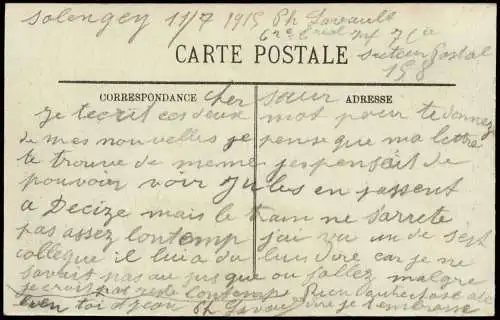 solengey 11/7 1915 Ph Lavault
CARTE POSTALE
secteur Postal
158
CORRESPONDANCE cher sœur ADRESSE
je tecrit ces deux mot pour te donnez
de mes nouvelles je pense que ma lettre
te trouve de meme jespensait de
pouvoir voir Jules en passent
a Decize mais le tram ne sarrete
pas assez lontemp jai vu un de sept
collegue il lui a du lui dire car je ne
savait pas au jus que ou jallez malgre
je croit pas reste lontemps Rien autre chose a te
bien toi d jean Ph Lavau que je tembrasse